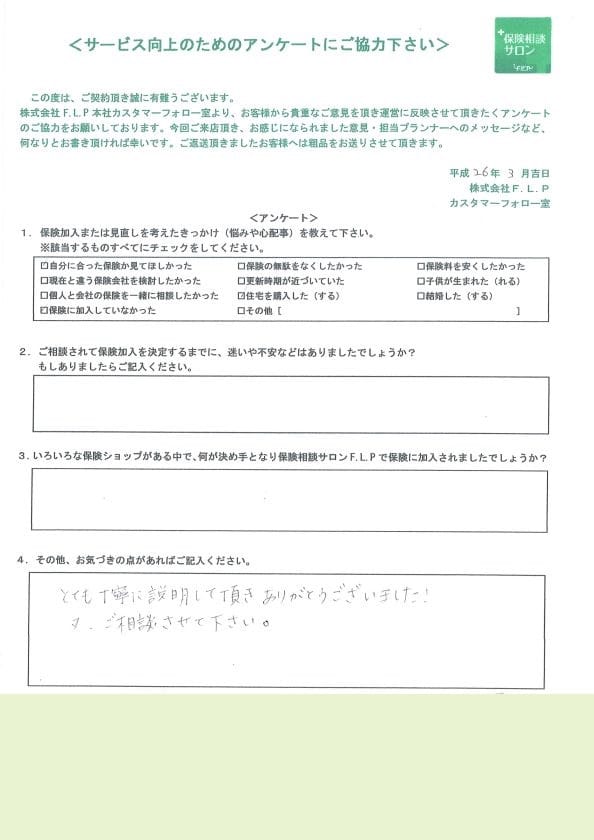 ＜サービス向上のためのアンケートにご協力下さい＞
保険相談
サロン
F.L.P
この度は、ご契約頂き誠に有難うございます。
株式会社Ｆ.Ｌ.Ｐ本社カスタマーフォロー室より、お客様から貴重なご意見を頂き運営に反映させて頂きたくアンケート
のご協力をお願いしております。今回ご来店頂き、お感じになられました意見・担当プランナーへのメッセージなど、
何なりとお書き頂ければ幸いです。ご返送頂きましたお客様へは粗品をお送りさせて頂きます。
平成26年 3 月吉日
株式会社Ｆ.Ｌ.Ｐ
カスタマーフォロー室
＜アンケート＞
１．保険加入または見直しを考えたきっかけ（悩みや心配事）を教えて下さい。
※該当するものすべてにチェックをしてください。
☑自分に合った保険か見てほしかった □保険の無駄をなくしたかった □保険料を安くしたかった
□現在と違う保険会社を検討したかった □更新時期が近づいていた □子供が生まれた（れる）
□個人と会社の保険を一緒に相談したかった ☑住宅を購入した（する） □結婚した（する）
☑保険に加入していなかった □その他［ ］
２．ご相談されて保険加入を決定するまでに、迷いや不安などはありましたでしょうか？
もしありましたらご記入ください。
３．いろいろな保険ショップがある中で、何が決め手となり保険相談サロンＦ.Ｌ.Ｐで保険に加入されましたでしょうか？
４．その他、お気づきの点があればご記入ください。
とても丁寧に説明して頂きありがとうございました！
又、ご相談させて下さい。